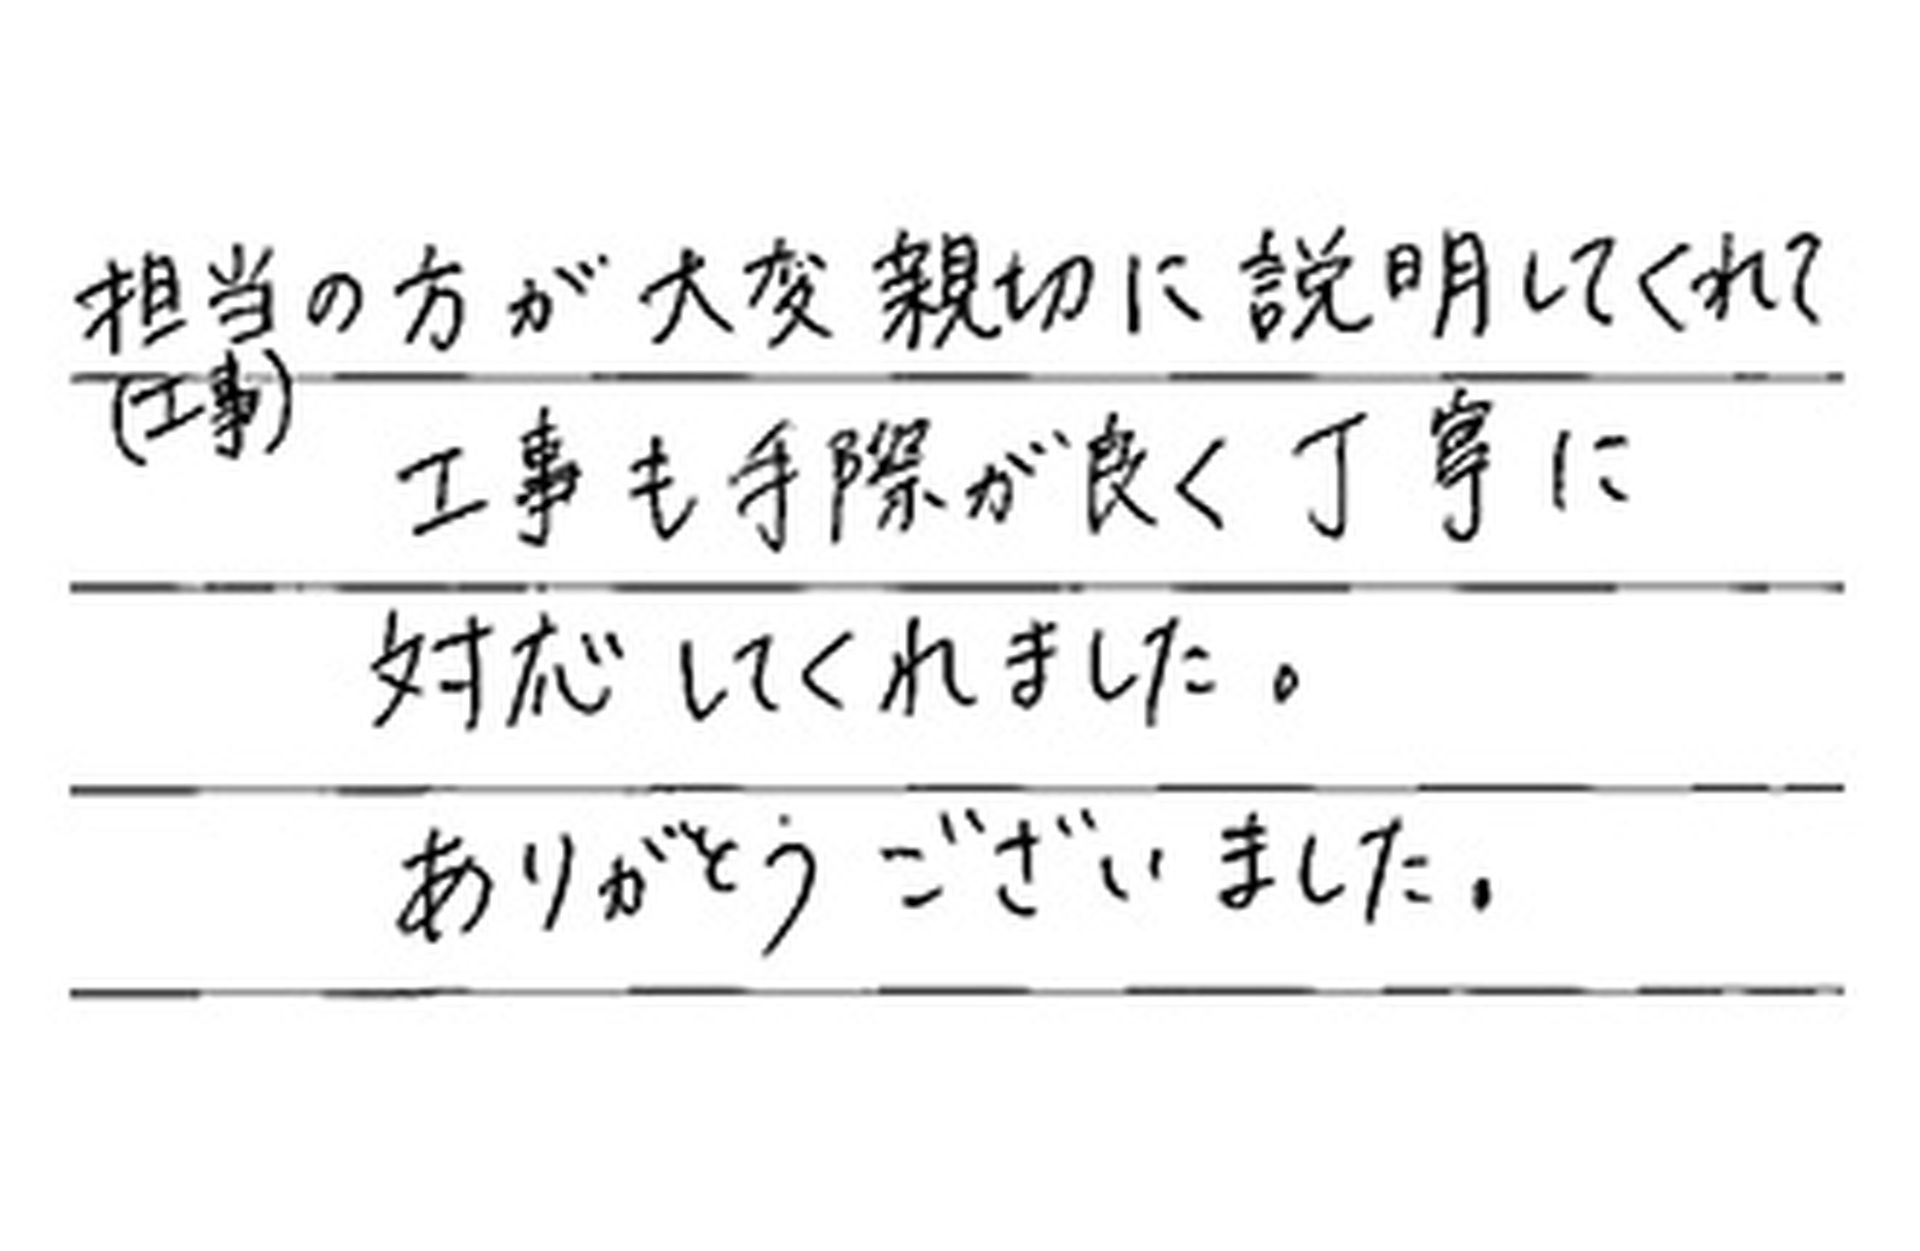 担当の方が大変親切に説明してくれて
(工事)
工事も手際が良く丁寧に
対応してくれました。
ありがとうございました。